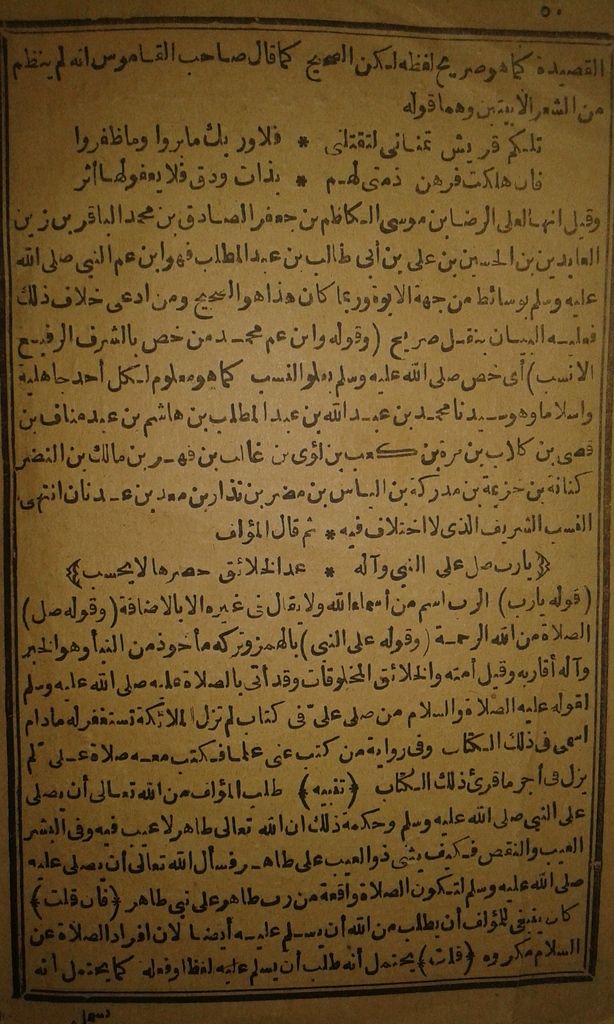 ٥٠
القصيدة كما هو صريح لفظه لكن الصحيح كما قال صاحب القاموس انه لم ينظم
من الشعر الا بيتين وهما قوله
تلكم قريش تمنانى لتقتلنى * فلا وربك ما بروا وما ظفروا
فان هلكت فرهن ذمتى لهم * بذات ودق فلا يعفو لها أثر
وقيل انها لعلى الرضا بن موسى الكاظم بن جعفر الصادق بن محمد الباقر بن زين
العابدين بن الحسين بن على بن أبى طالب بن عبد المطلب فهو ابن عم النبى صلى الله
عليه وسلم بوسائط من جهة الابوة وربما كان هذا هو الصحيح ومن ادعى خلاف ذلك
فعليه البيان بنقل صريح (وقوله وابن عم محمد من خص بالشرف الرفيع
الانسب) أى خص صلى الله عليه وسلم بعلو النسب كما هو معلوم لكل أحد جاهلية
واسلاما وهو سيدنا محمد بن عبد الله بن عبد المطلب بن هاشم بن عبد مناف بن
قصى بن كلاب بن مرة بن كعب بن لؤى بن غالب بن فهر بن مالك بن النضر
كنانة بن خزيمة بن مدركة بن الياس بن مضر بن نذار بن معد بن عدنان انتهى
النسب الشريف الذى لا اختلاف فيه * ثم قال المؤلف
﴿يارب صل على النبى وآله * عد الخلائق حصرها لا يحسب﴾
(قوله يارب) الرب اسم من أسماء الله ولا يقال فى غيره الا بالاضافة (وقوله صل)
الصلاة من الله الرحمة (وقوله على النبى) بالهمز وتركه مأخوذ من النبأ وهو الخبر
وآله أقاربه وقيل أمته والخلائق المخلوقات وقد أتى بالصلاة عليه صلى الله عليه وسلم
لقوله عليه الصلاة والسلام من صلى علىّ فى كتاب لم تزل الملائكة تستغفر له مادام
اسمى فى ذلك الكتاب وفى رواية من كتب عنى علما فكتب معه صلاة على لم
يزل فى أجر ما قرئ ذلك الكتاب ﴿تنبيه﴾ طلب المؤلف من الله تعالى أن يصلى
على النبى صلى الله عليه وسلم وحكمة ذلك ان الله تعالى طاهر لا عيب فيه وفى البشر
العيب والنقص فكيف يثنى ذو العيب على طاهر فسأل الله تعالى أن يصلى عليه
صلى الله عليه وسلم لتكون الصلاة واقعة من رب طاهر على نبى طاهر ﴿فان قلت﴾
كان ينبغى للمؤلف أن يطلب من الله أن يسلم عليه أيضا لان افراد الصلاة عن
السلام مكروه ﴿قلت﴾ يحتمل أنه طلب أن يسلم عليه لفظا وفعله كما يحتمل أنه